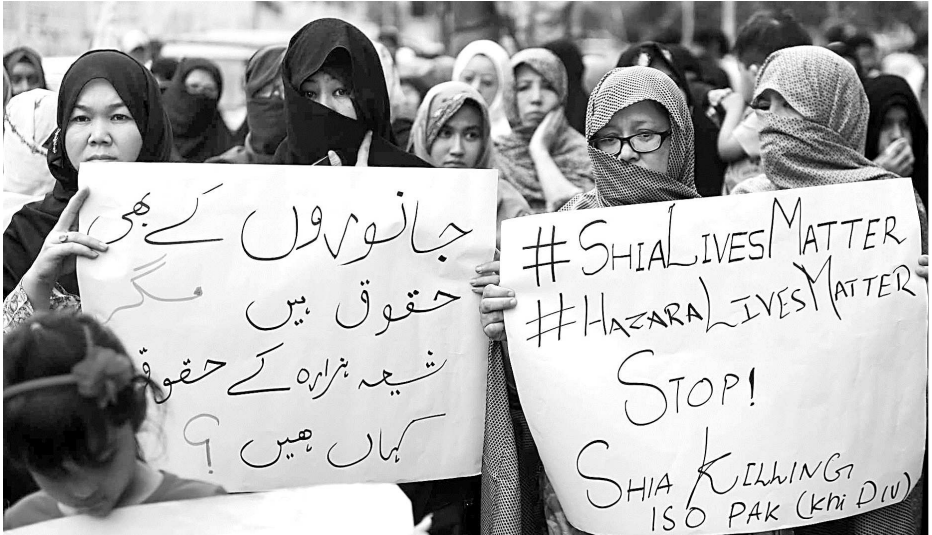 جانوروں کے بھی
حقوق ہیں مگر
شیعہ ہزارہ کے حقوق
کہاں ھیں ؟
#SHIALIVESMATTER
#HAZARALIVESMATTER
STOP!
SHIA KILLING
ISO PAK (Khi DIV)